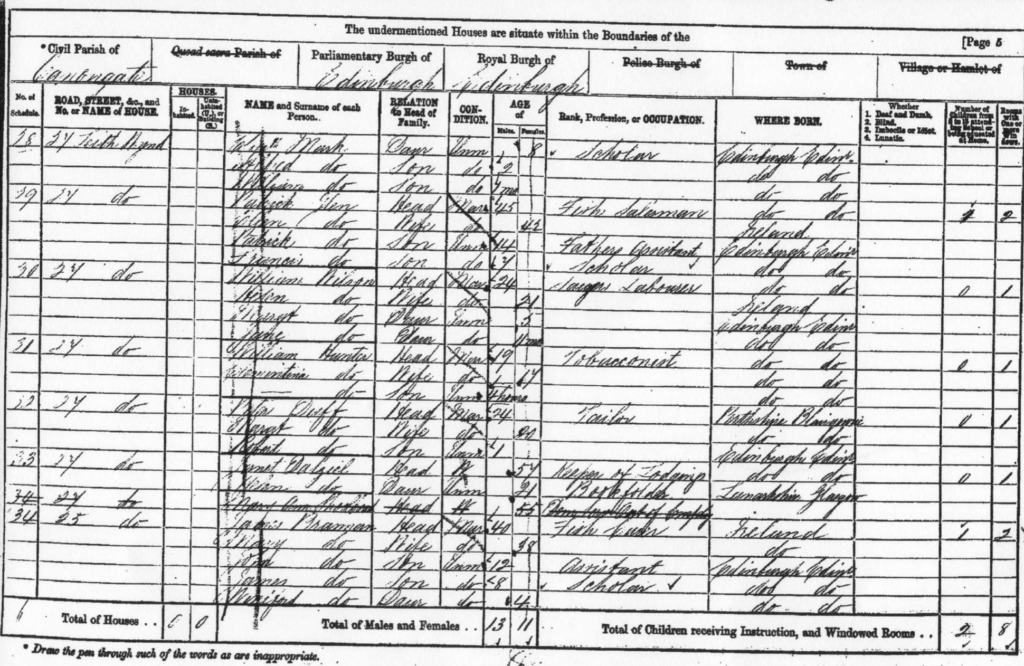 The undermentioned Houses are situate within the Boundaries of the
[Page 5
* Civil Parish of Quoad sacra Parish of Parliamentary Burgh of Royal Burgh of Police Burgh of Town of Village or Hamlet of
Canongate Edinburgh Edinburgh
No. of Schedule. ROAD, STREET, &c., and No. or NAME of HOUSE. HOUSES. Inhabited. Uninhabited (U.), or Building (B.) NAME and Surname of each Person. RELATION to Head of Family. CONDITION. AGE of Males. Females. Rank, Profession, or OCCUPATION. WHERE BORN. Whether 1. Deaf and Dumb. 2. Blind. 3. Imbecile or Idiot. 4. Lunatic. Number of Children from
28 27 Leith Wynd Daur Unm 8 Scholar Edinburgh Edinr
do Son do 2 do do
William do Son do do do
29 27 do Patrick Head Mar 45 Fish Salesman do do 2
do Wife do 43 Ireland
Patrick do Son Unm 14 Fathers Assistant Edinburgh Edinr
Francis do Son do 7 Scholar do do
30 27 do William Wilson Head Mar 24 Labourer do do 0 1
Helen do Wife do 21 Ireland
Margt do Daur Unm 3 Edinburgh Edin
Jane do Daur do do do
31 27 do William Hunter Head Mar 19 Tobacconist do do 0 1
Clementina do Wife do 17 do do
do Son Unm do do
32 27 do Peter Duff Head Mar 24 Tailor Perthshire Blairgowrie 0 1
Margt do Wife do 20 do do
Robert do Son Unm 1 Edinburgh Edinr
33 27 do Janet Dalziel Head W 57 Keeper of Lodgings do do 0 1
Jean do Daur Unm 21 Bookfolder Lanarkshire Glasgow
34 27 do Mary Ann Head W 55
34 25 do James Brannan Head Mar 40 Fish Ireland 1 2
Mary do Wife do 38 do
do Son Unm 12 Assistant Edinburgh Edinr
James do Son do 8 Scholar do do
Winifred do Daur do 4 do do
6 Total of Houses . . 0 0 Total of Males and Females . . 13 11 Total of Children receiving Instruction, and Windowed Rooms . . 2 8
* Draw the pen through such of the words as are inappropriate.